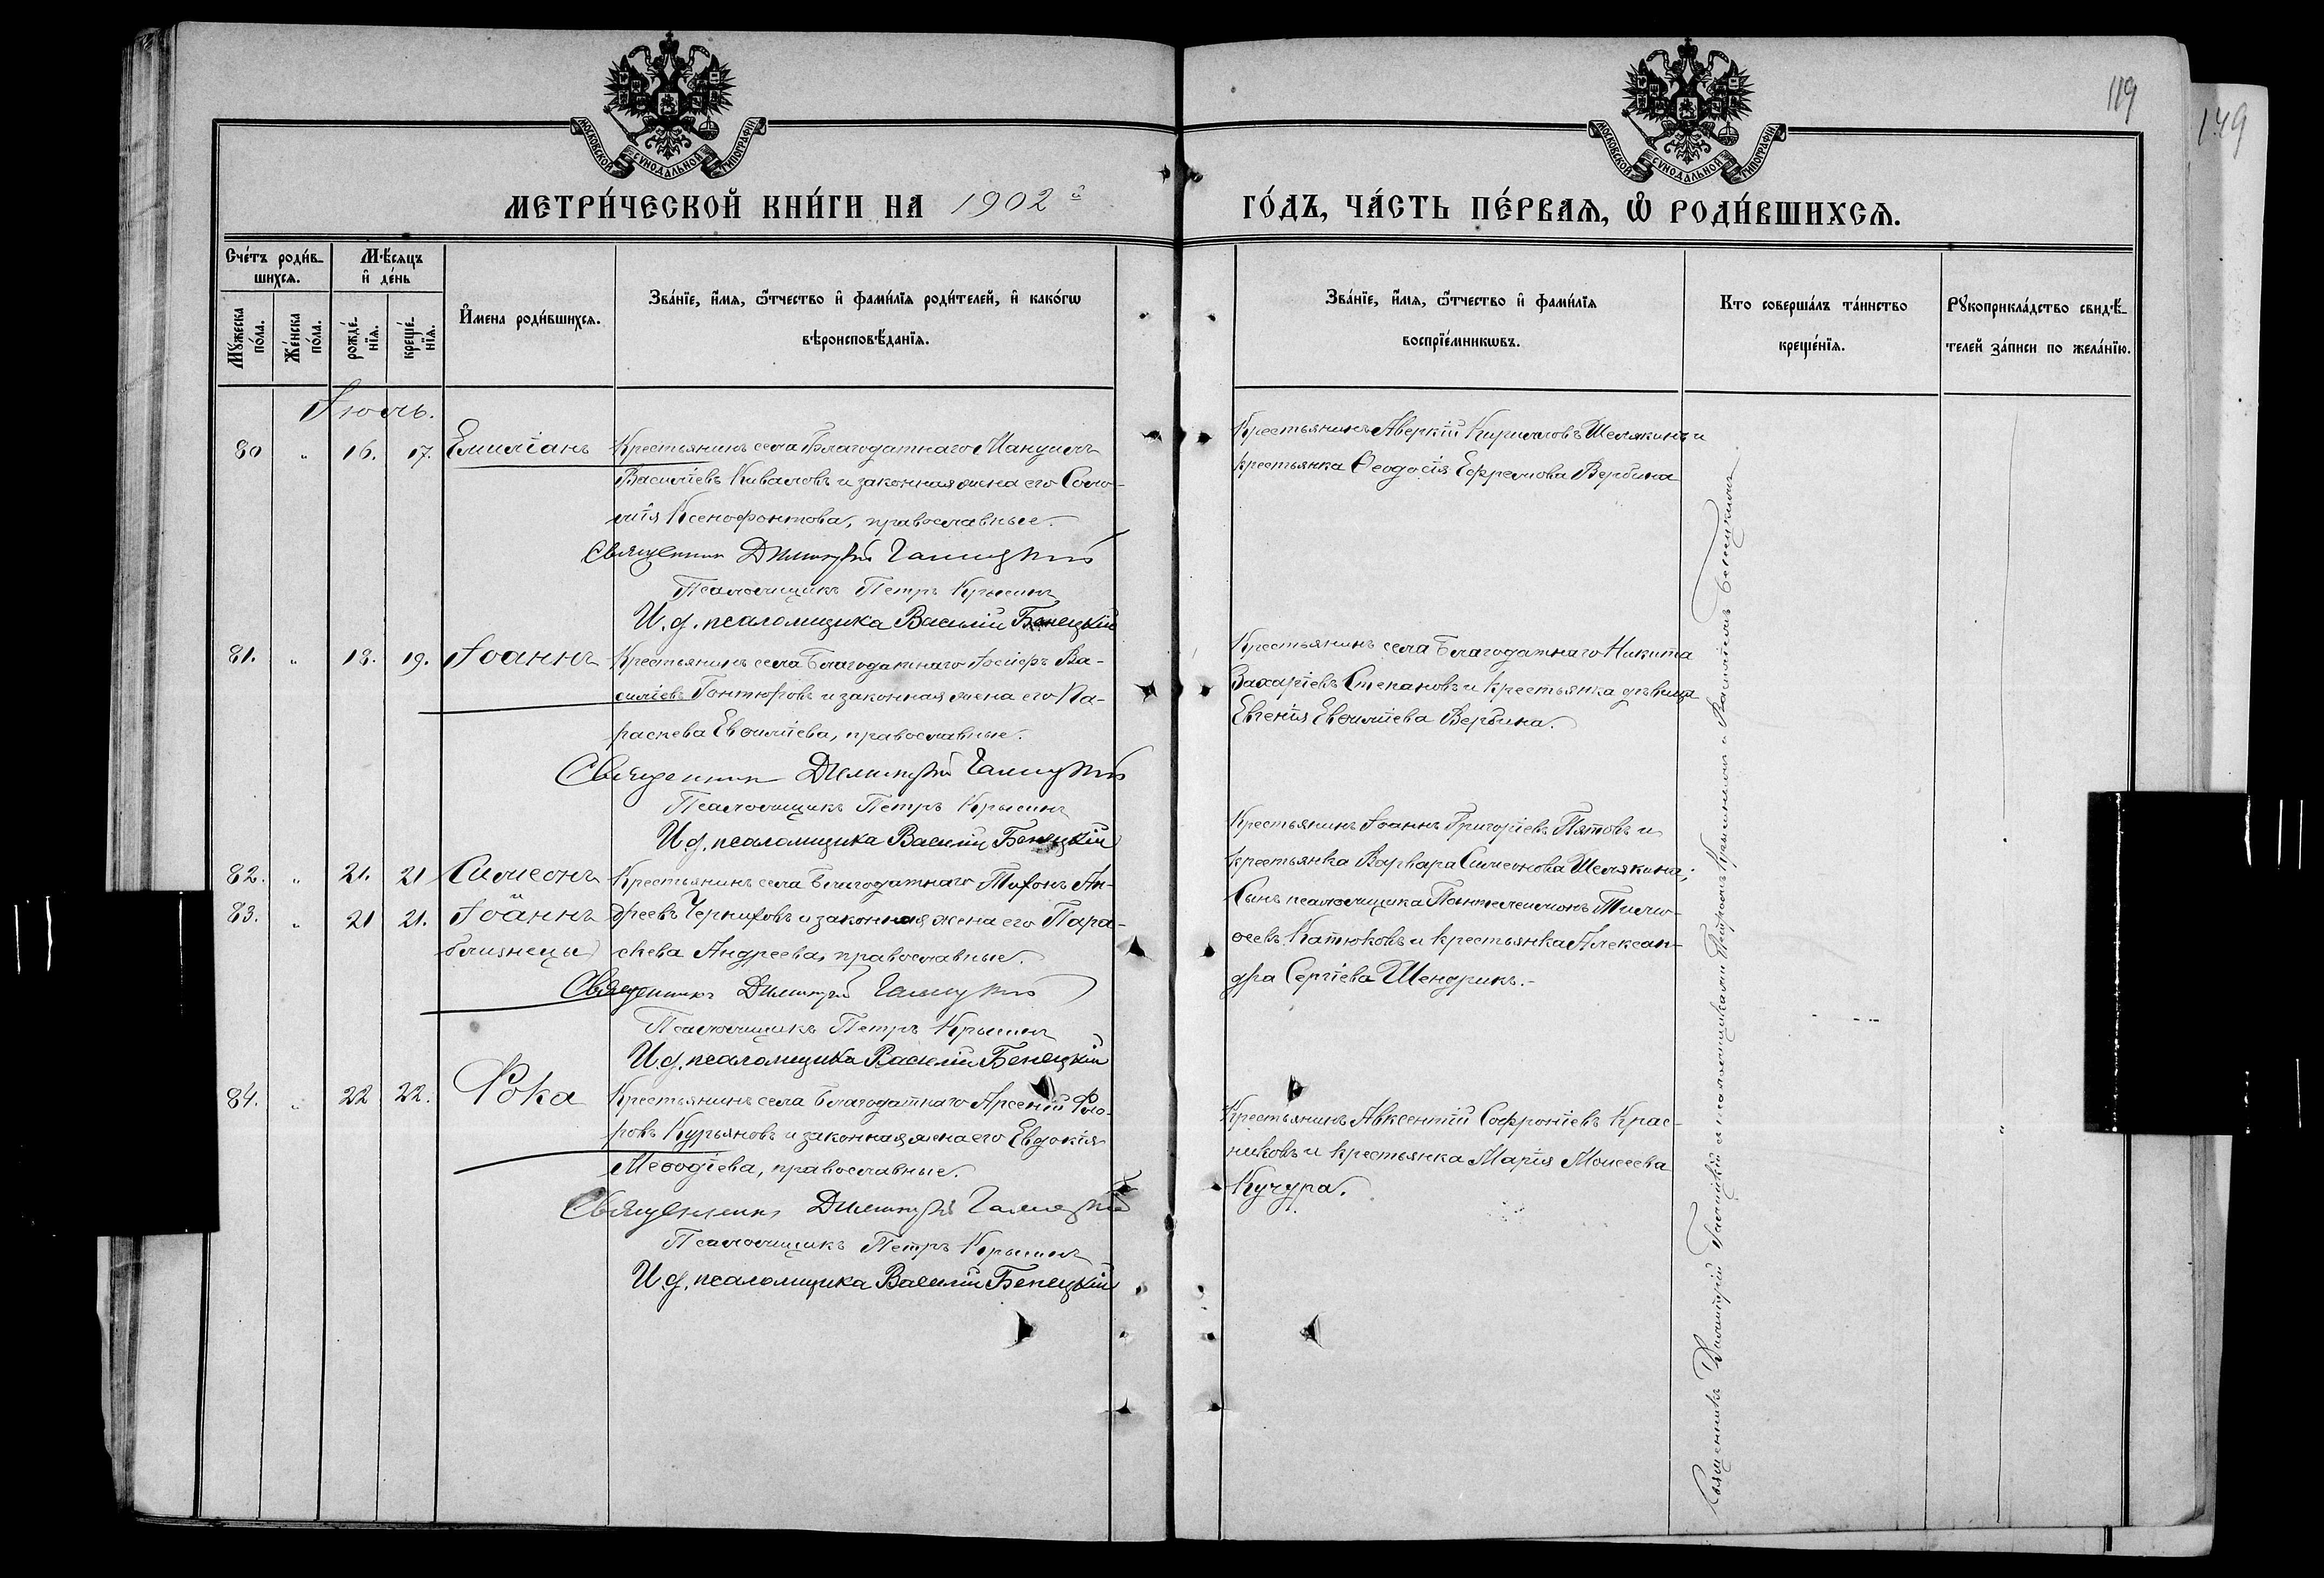 119
149
МОСКОВСКОЙ СѴНОДАЛЬНОЙ ТИПОГРАФІИ
МОСКОВСКОЙ СѴНОДАЛЬНОЙ ТИПОГРАФІИ
МЕТРИ́ЧЕСКОЙ КНИ́ГИ НА 1902й
ГО́ДЪ, ЧА́СТЬ ПЕ́РВАЯ, Ѽ РОДИ́ВШИХСЯ.
Сче́тъ роди́в-
шихся.
Му́жеска по́ла.
Же́нска по́ла.
Мѣ́сяцъ
и де́нь
рожде́-
нїя.
креще́-
нїя.
И҆мена роди́вшихся.
Зва́нїе, и҆́мя, ѻ҆́тчество и҆ фами́лїя роди́телей, и҆ како́гѡ
вѣроисповѣ́данїя.
Зва́нїе, и҆́мя, ѻ҆́тчество и҆ фами́лїя
воспрїе́мникѡвъ.
Кто соверша́лъ та́инство
креще́нїя.
Рукоприкла́дство свидѣ́-
телей за́писи по жела́нїю.
Іюль.
80 " 16. 17. Емиліанъ Крестьянинъ села Благодатнаго Мануилъ
Василіевъ Киваловъ и законная жена его Соло-
мія Ксенофонтова, православные.
Священник Димитрій Галицкій
Псаломщикъ Петръ Крысинъ
И. д. псаломщика Василій Бенецкій
Крестьянинъ Аверкій Кирилловъ Шелякинъ и
крестьянка Ѳеодосія Ефремова Вербина
81. " 18. 19. Іоаннъ Крестьянинъ села Благодатнаго Іосифъ Ва-
силіевъ Гонтюровъ и законная жена его Па-
раскева Евѳиміева, православные.
Священник Димитрій Галицкій
Псаломщикъ Петръ Крысинъ
И д. псаломщика Василій Бенецкій
Крестьянинъ села Благодатнаго Никита
Захаріевъ Степановъ и крестьянка дѣвица
Евгенія Евѳиміева Вербина.
82. " 21. 21 Симеонъ Крестьянинъ села Благодатнаго Тихонъ Ан-
83. " 21 21. и Іоаннъ дреевъ Черниховъ и законная жена его Пара-
близнецы скева Андреева, православные.
Священникъ Димитрій Галицкій
Псаломщикъ Петръ Крысинъ
И. д. псаломщика Василій Бенецкій
Крестьянинъ Іоаннъ Григоріевъ Пятовъ и
крестьянка Варвара Симеонова Шелякина;
Сынъ псаломщика Пантелеимонъ Тимо-
ѳеевъ Катюковъ и крестьянка Алексан-
дра Сергіева Шендрикъ.-
84. " 22 22. Фока Крестьянинъ села Благодатнаго Арсеній Фло-
ровъ Курьяновъ и законная жена его Евдокія
Меѳодіева, православные.
Священникъ Димитрій Галицкій
Псаломщикъ Петръ Крысинъ
И. д. псаломщика Василій Бенецкій
Крестьянинъ Авксентій Софроніевъ Крас-
никовъ и крестьянка Марія Моисеева
Кучура.
Священникъ Димитрій Галицкій съ псаломщиками Петромъ Крысинымъ и Василіемъ Бенецкимъ.